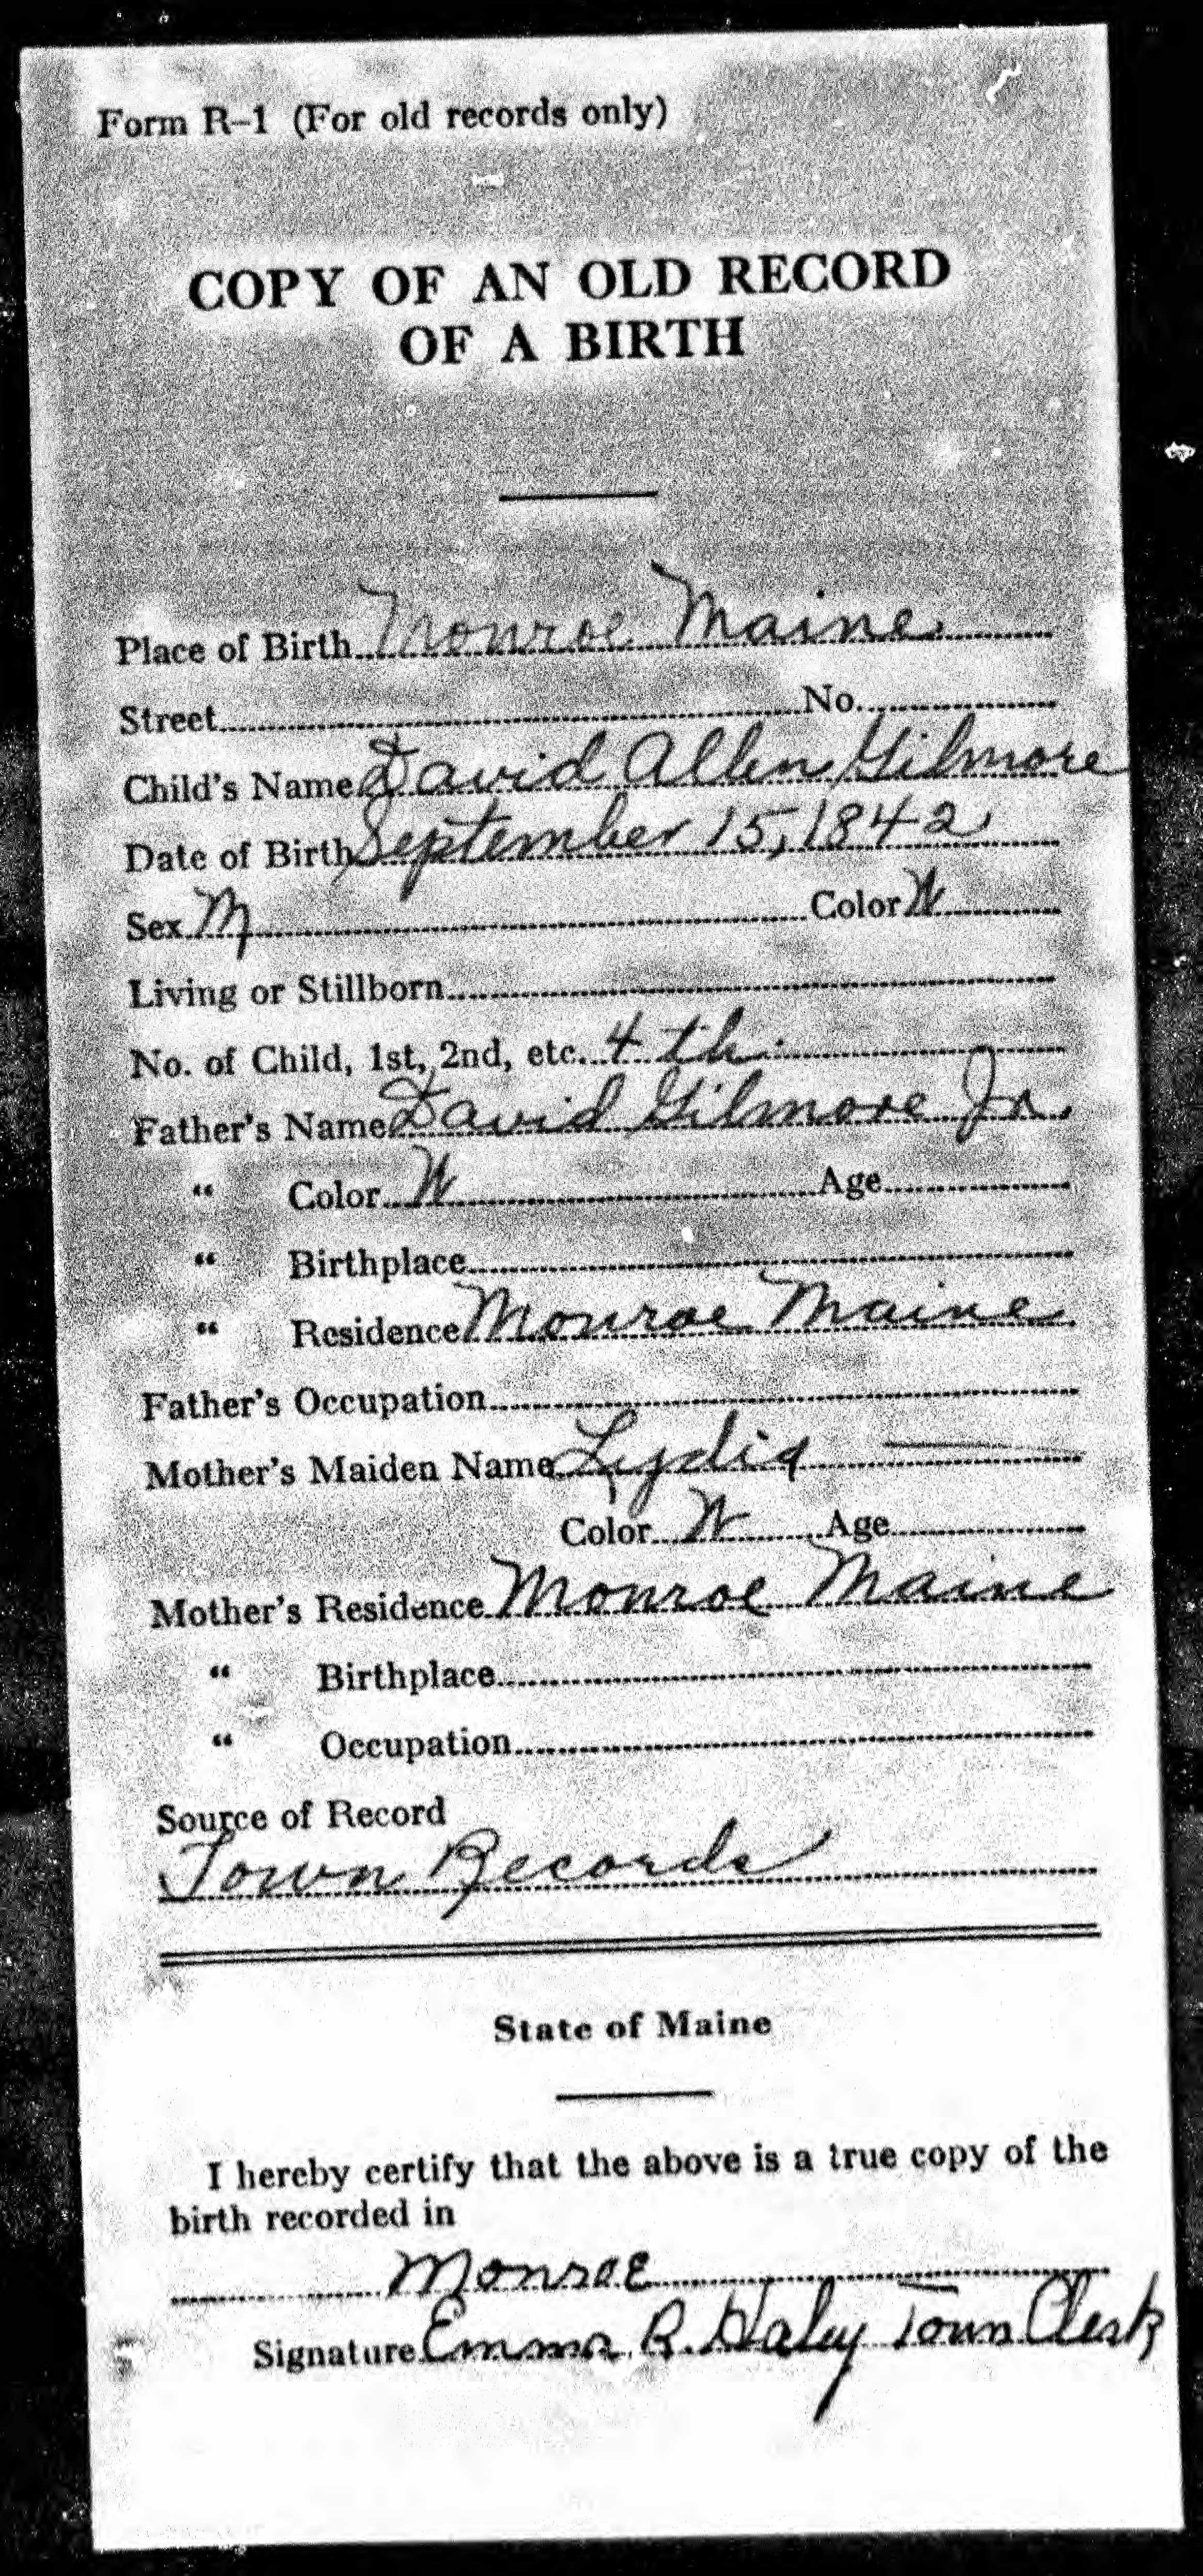 Form R-1 (For old records only)
COPY OF AN OLD RECORD
OF A BIRTH
Place of Birth Monroe Maine
Street No.
Child's Name David Allen Gilmore
Date of Birth September 15, 1842
Sex M Color W
Living or Stillborn
No. of Child, 1st, 2nd, etc. 4 th.
Father's Name David Gilmore Jr.
" Color W Age
" Birthplace
" Residence Monroe Maine
Father's Occupation
Mother's Maiden Name Lydia —
Color W Age
Mother's Residence Monroe Maine
" Birthplace
" Occupation
Source of Record
Town Records
State of Maine
I hereby certify that the above is a true copy of the
birth recorded in
Monroe
Signature Emma R. Haley Town Clerk